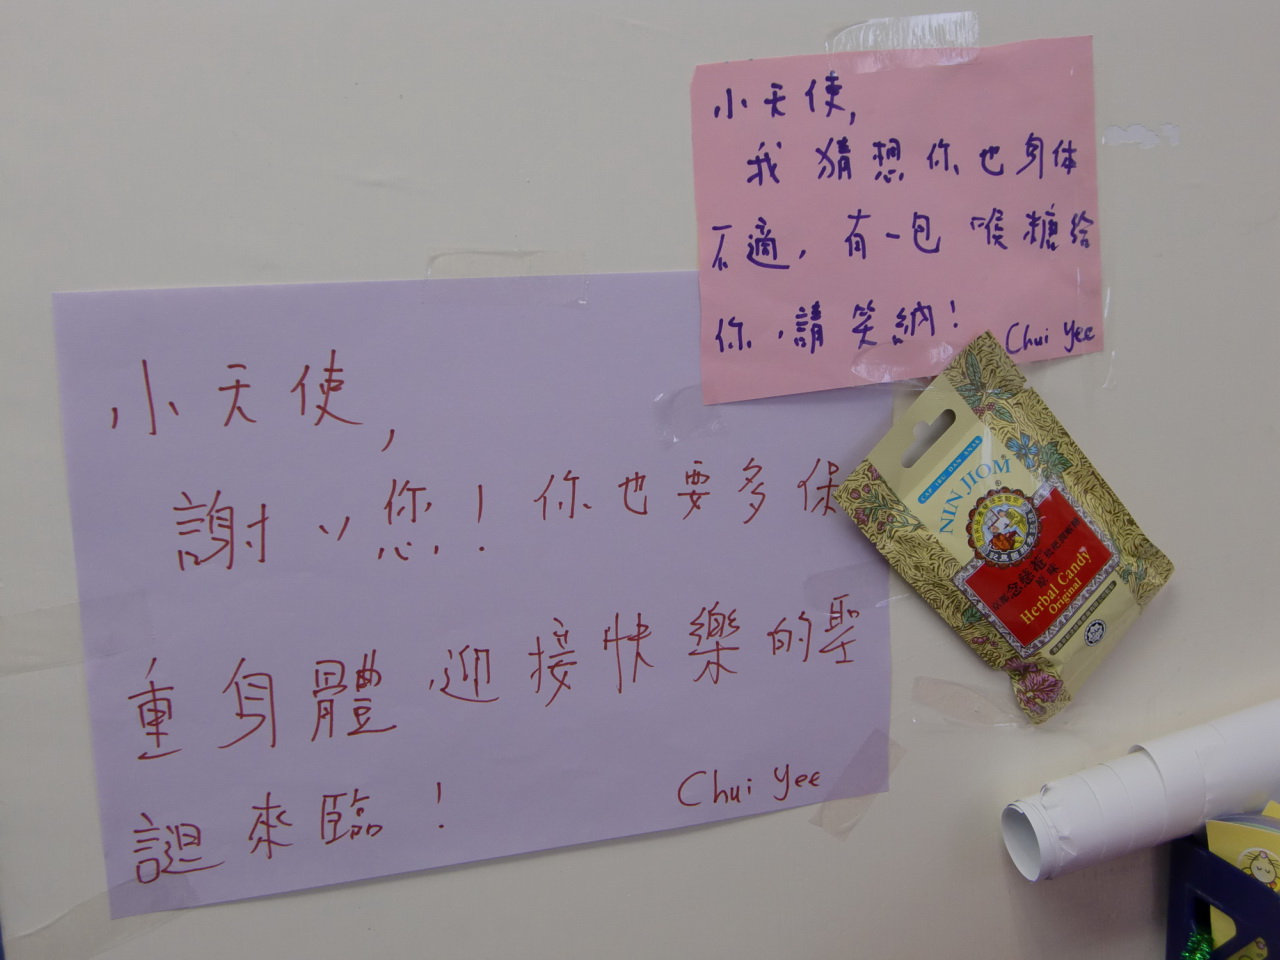 小天使,
我猜想你也身体
不適,有一包喉糖給
你,請笑納!
Chui Yee
小天使,
謝ヽヽ您!你也要多保
重身體,迎接快樂的聖
誕來臨!
Chui Yee
NIN JIOM
京都念慈菴枇杷潤喉糖
原味
Herbal Candy
Original